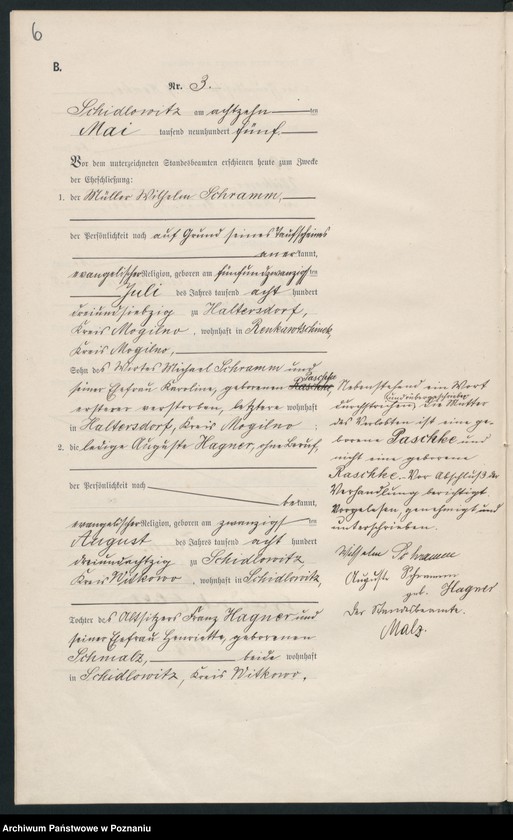 6
B.
Nr. 3.
Schidlowitz am achtzehn ten
Mai tausend neunhundert fünf.
Vor dem unterzeichneten Standesbeamten erschienen heute zum Zwecke
der Eheschließung:
1. der Müller Wilhelm Schramm,
der Persönlichkeit nach auf Grund seines Taufscheines
anerkannt,
evangelischer Religion, geboren am fünfundzwanzigsten
Juli des Jahres tausend acht hundert
dreiundsiebzig zu Haltersdorf,
Kreis Mogilno, wohnhaft in
Kreis Mogilno,
Sohn des Wirtes Michael Schramm und
Paschke
seiner Ehefrau Karoline, geborenen Raschke,
ersterer verstorben, letztere wohnhaft
in Haltersdorf, Kreis Mogilno :
2. die ledige Auguste Hagner, ohne Beruf,
der Persönlichkeit nach
bekannt,
evangelischer Religion, geboren am zwanzigsten
August des Jahres tausend acht hundert
dreiundachtzig zu Schidlowitz,
Kreis Witkowo, wohnhaft in Schidlowitz,
Tochter des Altsitzers Franz Hagner und
seiner Ehefrau Henriette, geborenen
Schmalz, beide wohnhaft
in Schidlowitz, Kreis Witkowo.
Nebenstehend ein Wort
durchstrichen, Die Mutter
des Verlobten ist eine ge-
borene Paschke und
nicht eine geborene
Raschke. Vor Abschluß der
Verhandlung berichtigt
Vorgelesen, genehmigt und
unterschrieben.
Wilhelm Schramm
Auguste Schramm
geb. Hagner
Der Standesbeamte.
Malz.
Archiwum Państwowe w Poznaniu